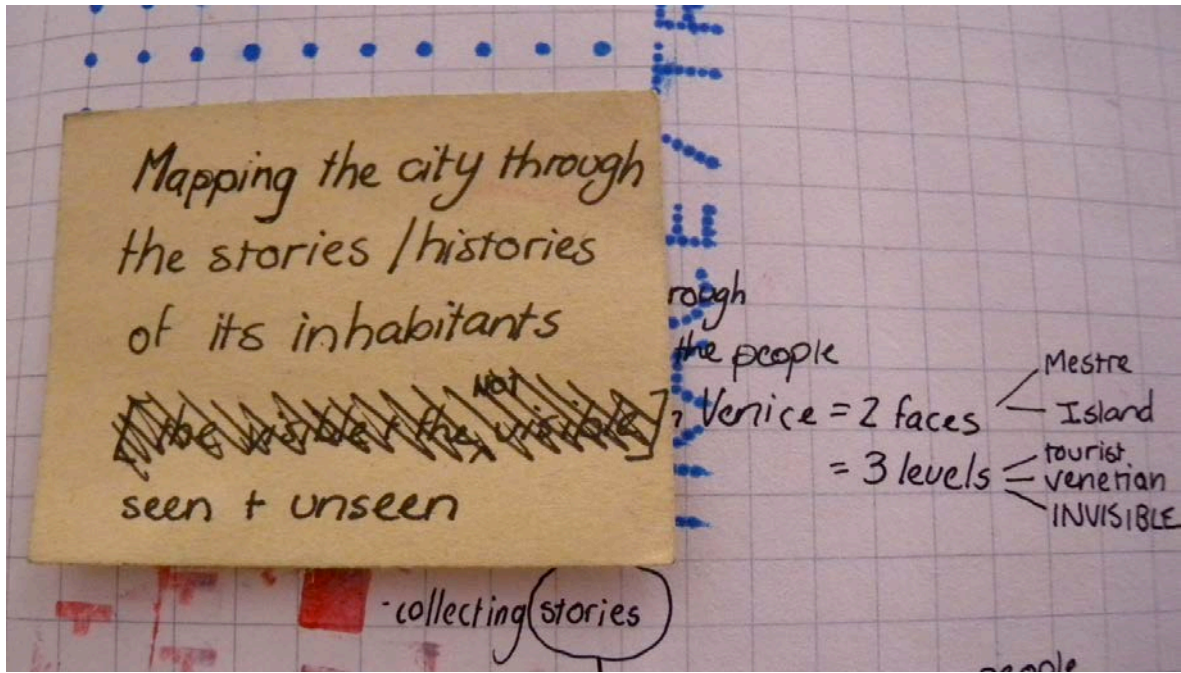 Mapping the city through
the stories / histories
of its inhabitants
[the visible + the NOT visible]
seen + unseen
rough
the people
Venice = 2 faces
Mestre
Island
= 3 levels
tourist
venetian
INVISIBLE
- collecting stories
people